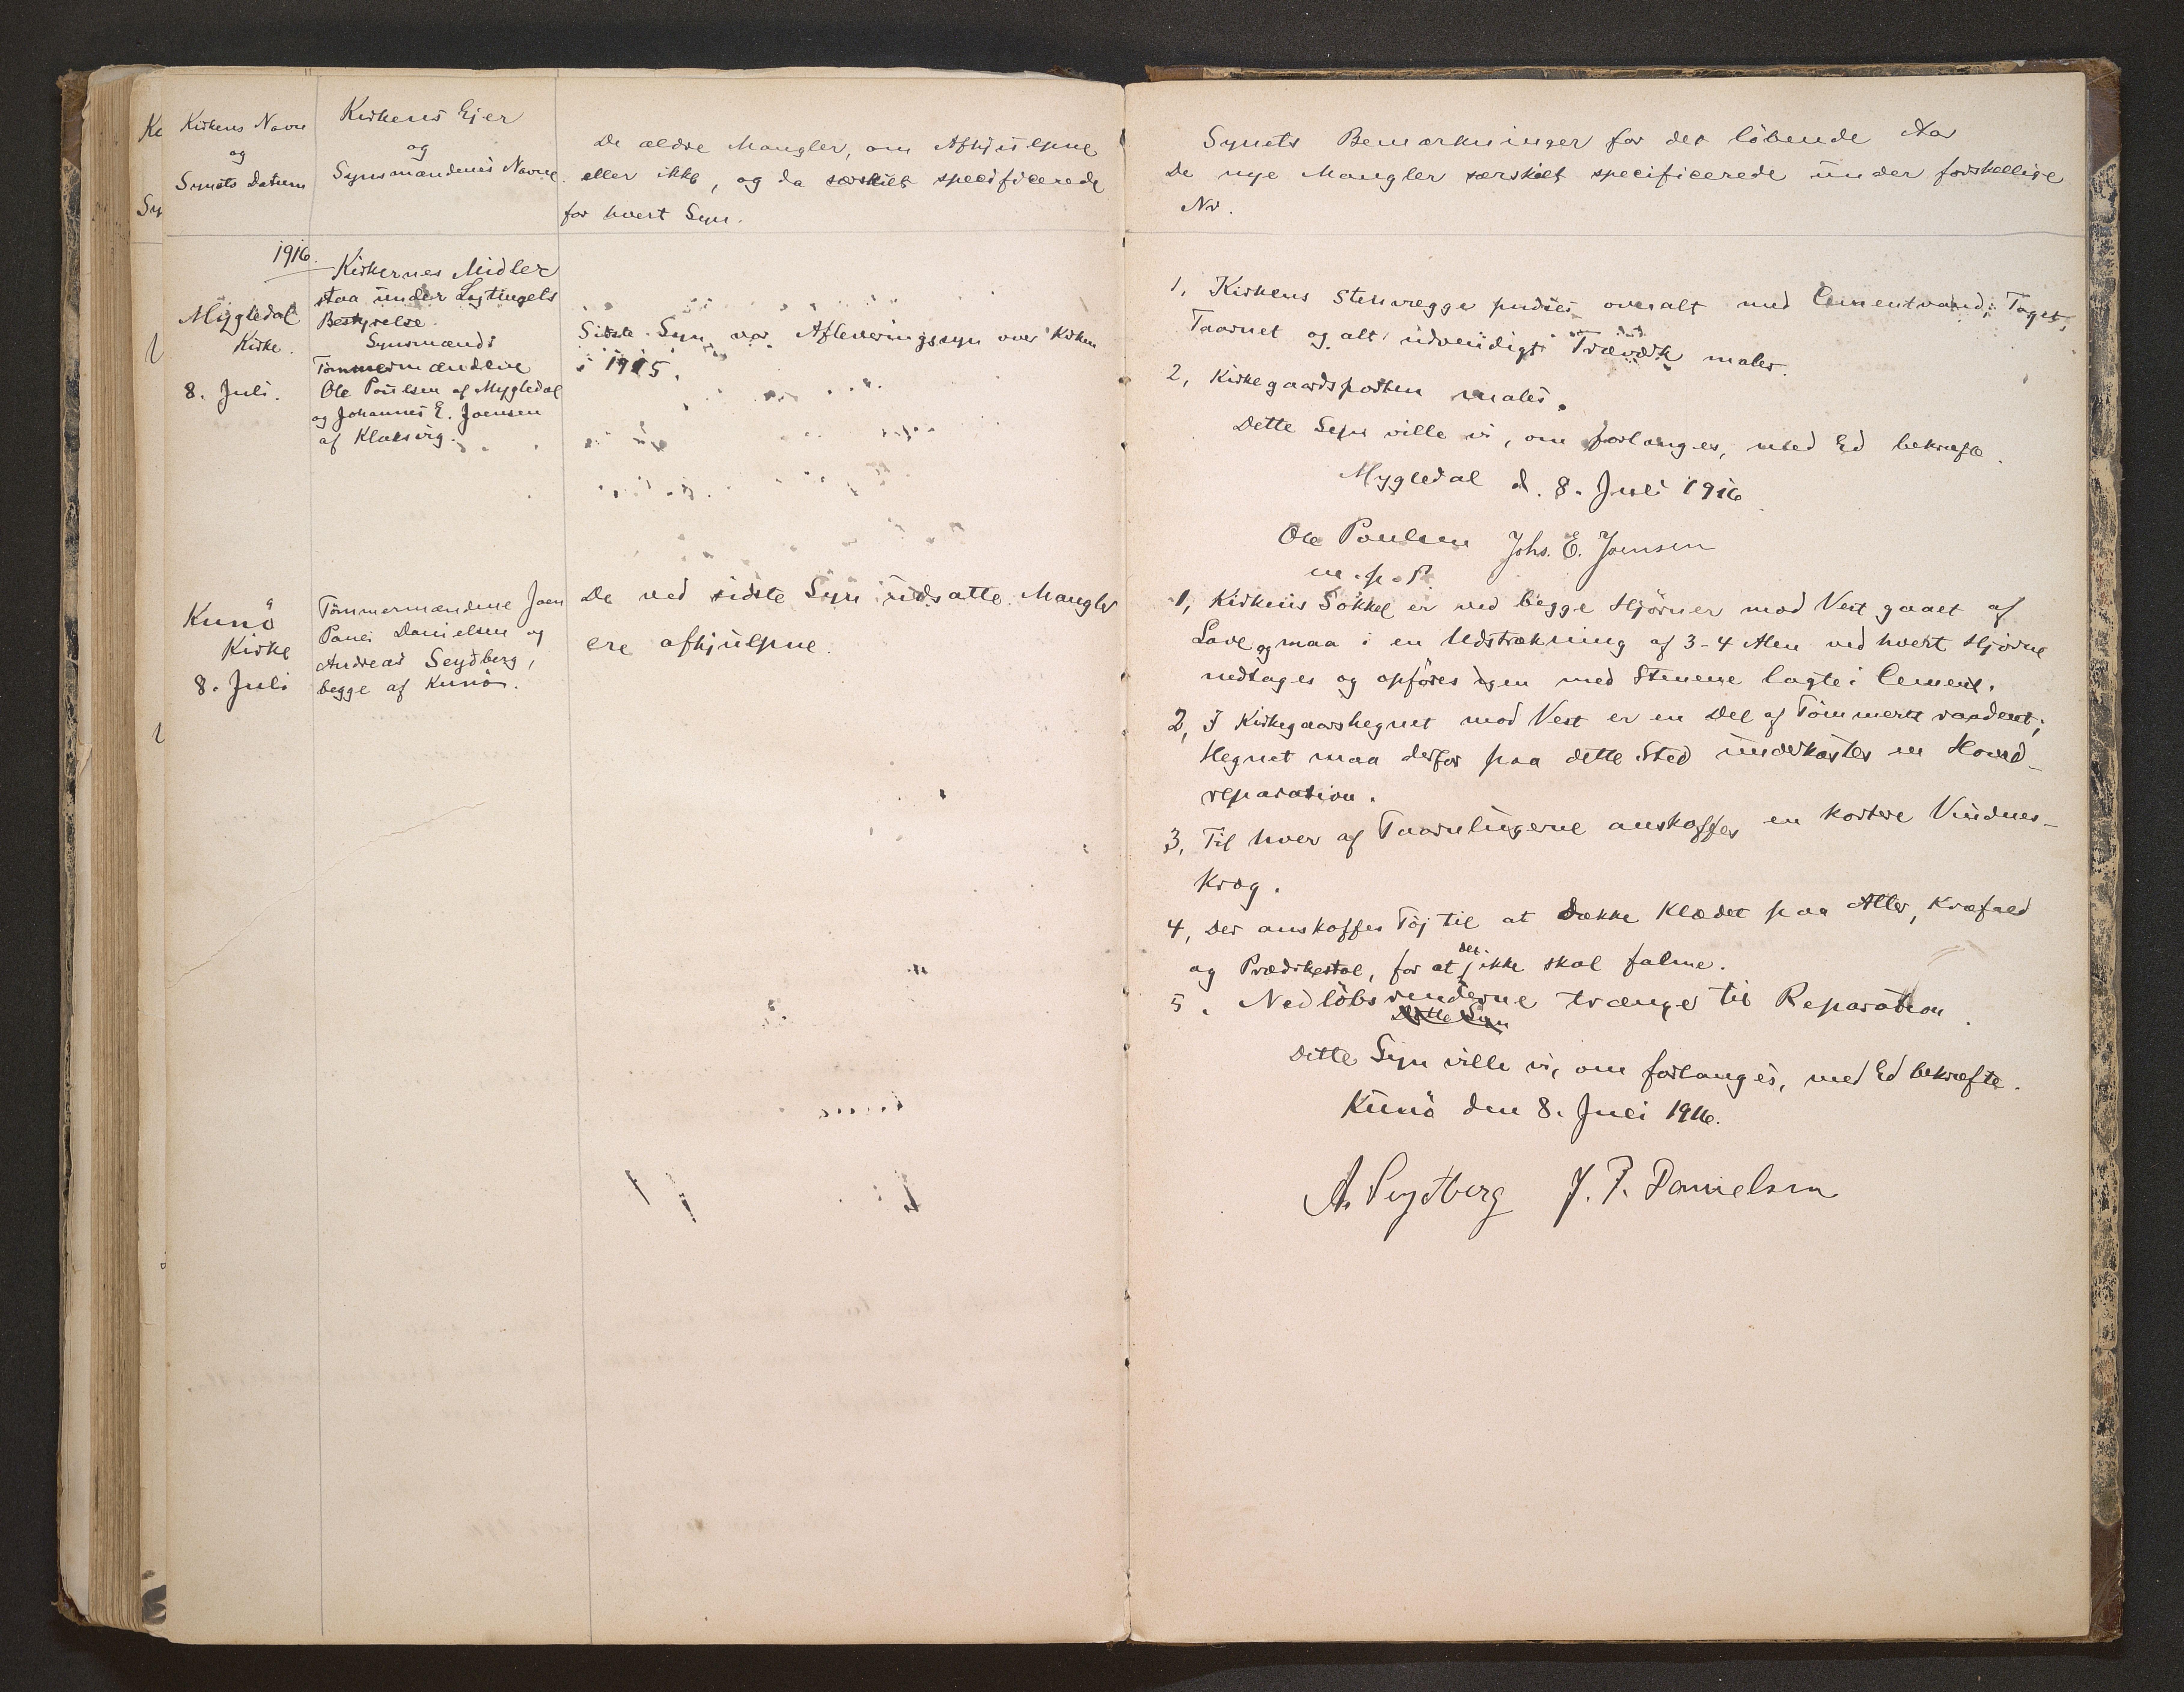 Kirkens Navn
og
Synets Datum
Kirkens Ejer
og
Synsmændenes Navne
De ældre Mangler, om Afhjulpne
eller ikke, og da særskilt specificerede
for hvert Syn.
1916.
Mygledal
Kirke.
8. Juli.
Kirkernes Midler
staa under Lagtingets
Bestyrelse.
Synsmænd:
Tømmermændene
Ole Poulsen af Mygledal
og Johannes E. Joensen
af Klaksvig.
Sidste Syn var Afleveringssyn over Kirken
i 1915.
Kunö
Kirke
8. Juli
Tömmermændene Joen
Pauli Danielsen og
Andreas Seydberg,
begge af Kunö.
De ved sidste Syn udsatte Mangler
ere afhjulpne.
Synets Bemærkninger for det löbende Aar
De nye Mangler særskilt specificerede under forskellige
Nr.
1, Kirkens Stenvægge pudses overalt med Cementvand; Taget,
Taarnet og alt udvendigt Træværk males.
2, Kirkegaardsporten males.
Dette Syn ville vi, om forlanges, med Ed bekræfte.
Mygledal d. 8. Juli 1916.
Ole Poulsen Johs. E. Joensen
m. p. P.
1, Kirkens Sokkel er ved begge Hjörner mod Vest gaaet af
Lave og maa i en Udstrækning af 3-4 Alen ved hvert Hjörne
nedtages og opföres igen med Stenene lagte i Cement.
2, I Kirkegaardshegnet mod Vest er en Del af Tömmeret raadent;
Hegnet maa derfor paa dette Sted underkastes en Hoved-
reparation.
3, Til hver af Taarnlugerne anskaffes en kortere Vindues-
krog.
4, Der anskaffes Töj til at dække Klædet paa Alter, Knæfald
og Prædikestol, for at det ikke skal falme.
5. Nedlöbsrenderne trænge til Reparation.
Dette Syn
Dette Syn ville vi, om forlanges, med Ed bekræfte.
Kunö den 8. Juli 1916.
A. Seydberg J. P. Danielsen